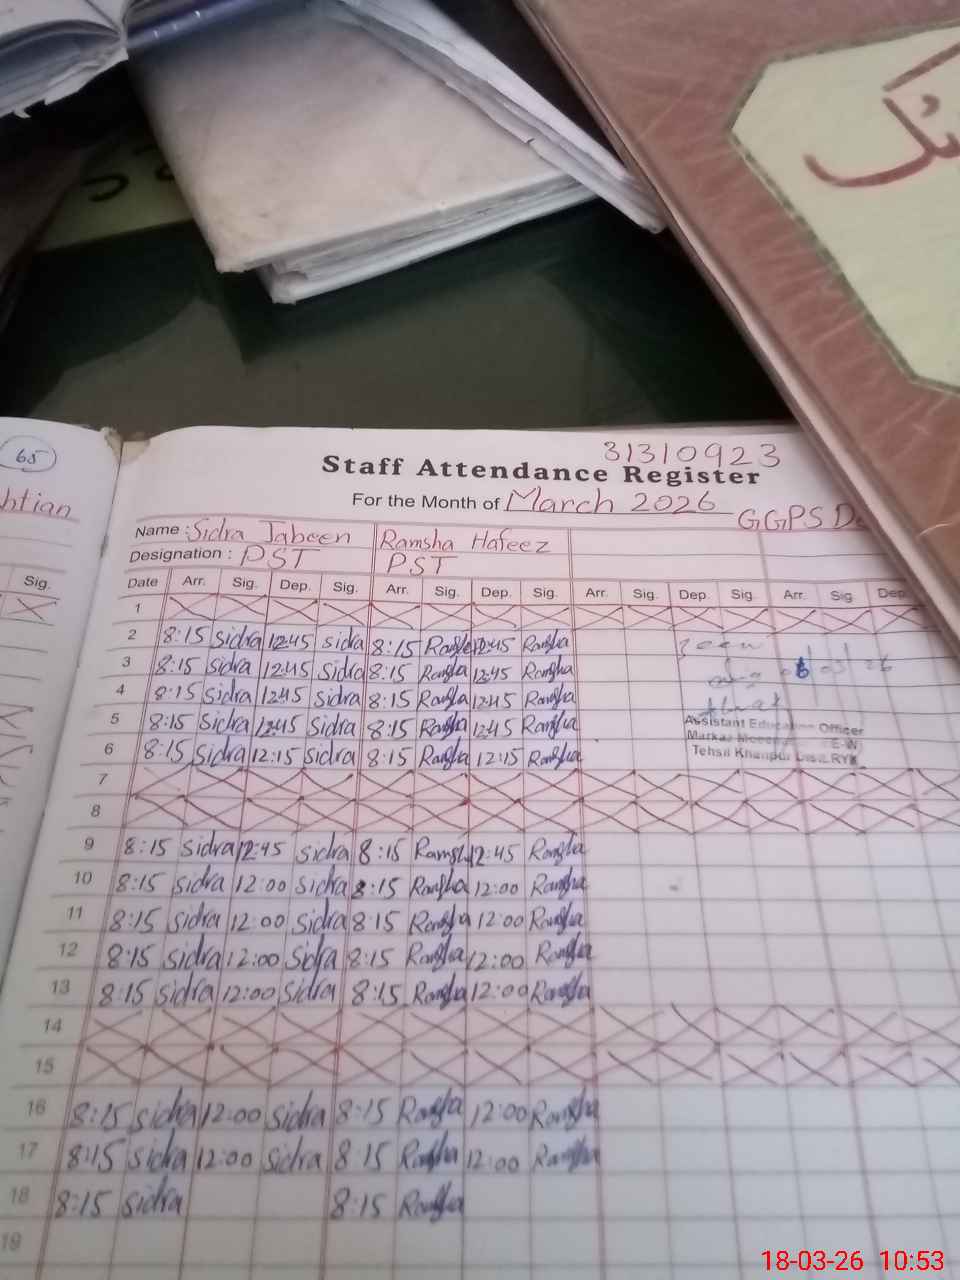 65
htian
Sig.
31310923
Staff Attendance Register
For the Month of March 2026
GGPS
Name : Sidra Jabeen Ramsha Hafeez
Designation : PST PST
Date Arr. Sig. Dep. Sig. Arr. Sig. Dep. Sig. Arr. Sig. Dep. Sig. Arr. Sig. Dep.
1
2 8:15 Sidra 12:45 Sidra 8:15 Ramsha 12:45 Ramsha
3 8:15 Sidra 12:45 Sidra 8:15 Ramsha 12:45 Ramsha
4 8:15 Sidra 12:45 Sidra 8:15 Ramsha 12:45 Ramsha
5 8:15 Sidra 12:45 Sidra 8:15 Ramsha 12:45 Ramsha
Assistant Education Officer
Markaz
6 8:15 Sidra 12:15 Sidra 8:15 Ramsha 12:15 Ramsha
Tehsil Khanpur Distt. RYK
7
8
9 8:15 Sidra 12:45 Sidra 8:15 Ramsha 12:45 Ramsha
10 8:15 Sidra 12:00 Sidra 8:15 Ramsha 12:00 Ramsha
11 8:15 Sidra 12:00 Sidra 8:15 Ramsha 12:00 Ramsha
12 8:15 Sidra 12:00 Sidra 8:15 Ramsha 12:00 Ramsha
13 8:15 Sidra 12:00 Sidra 8:15 Ramsha 12:00 Ramsha
14
15
16 8:15 Sidra 12:00 Sidra 8:15 Ramsha 12:00 Ramsha
17 8:15 Sidra 12:00 Sidra 8:15 Ramsha 12:00 Ramsha
18 8:15 Sidra 8:15 Ramsha
19
18-03-26 10:53